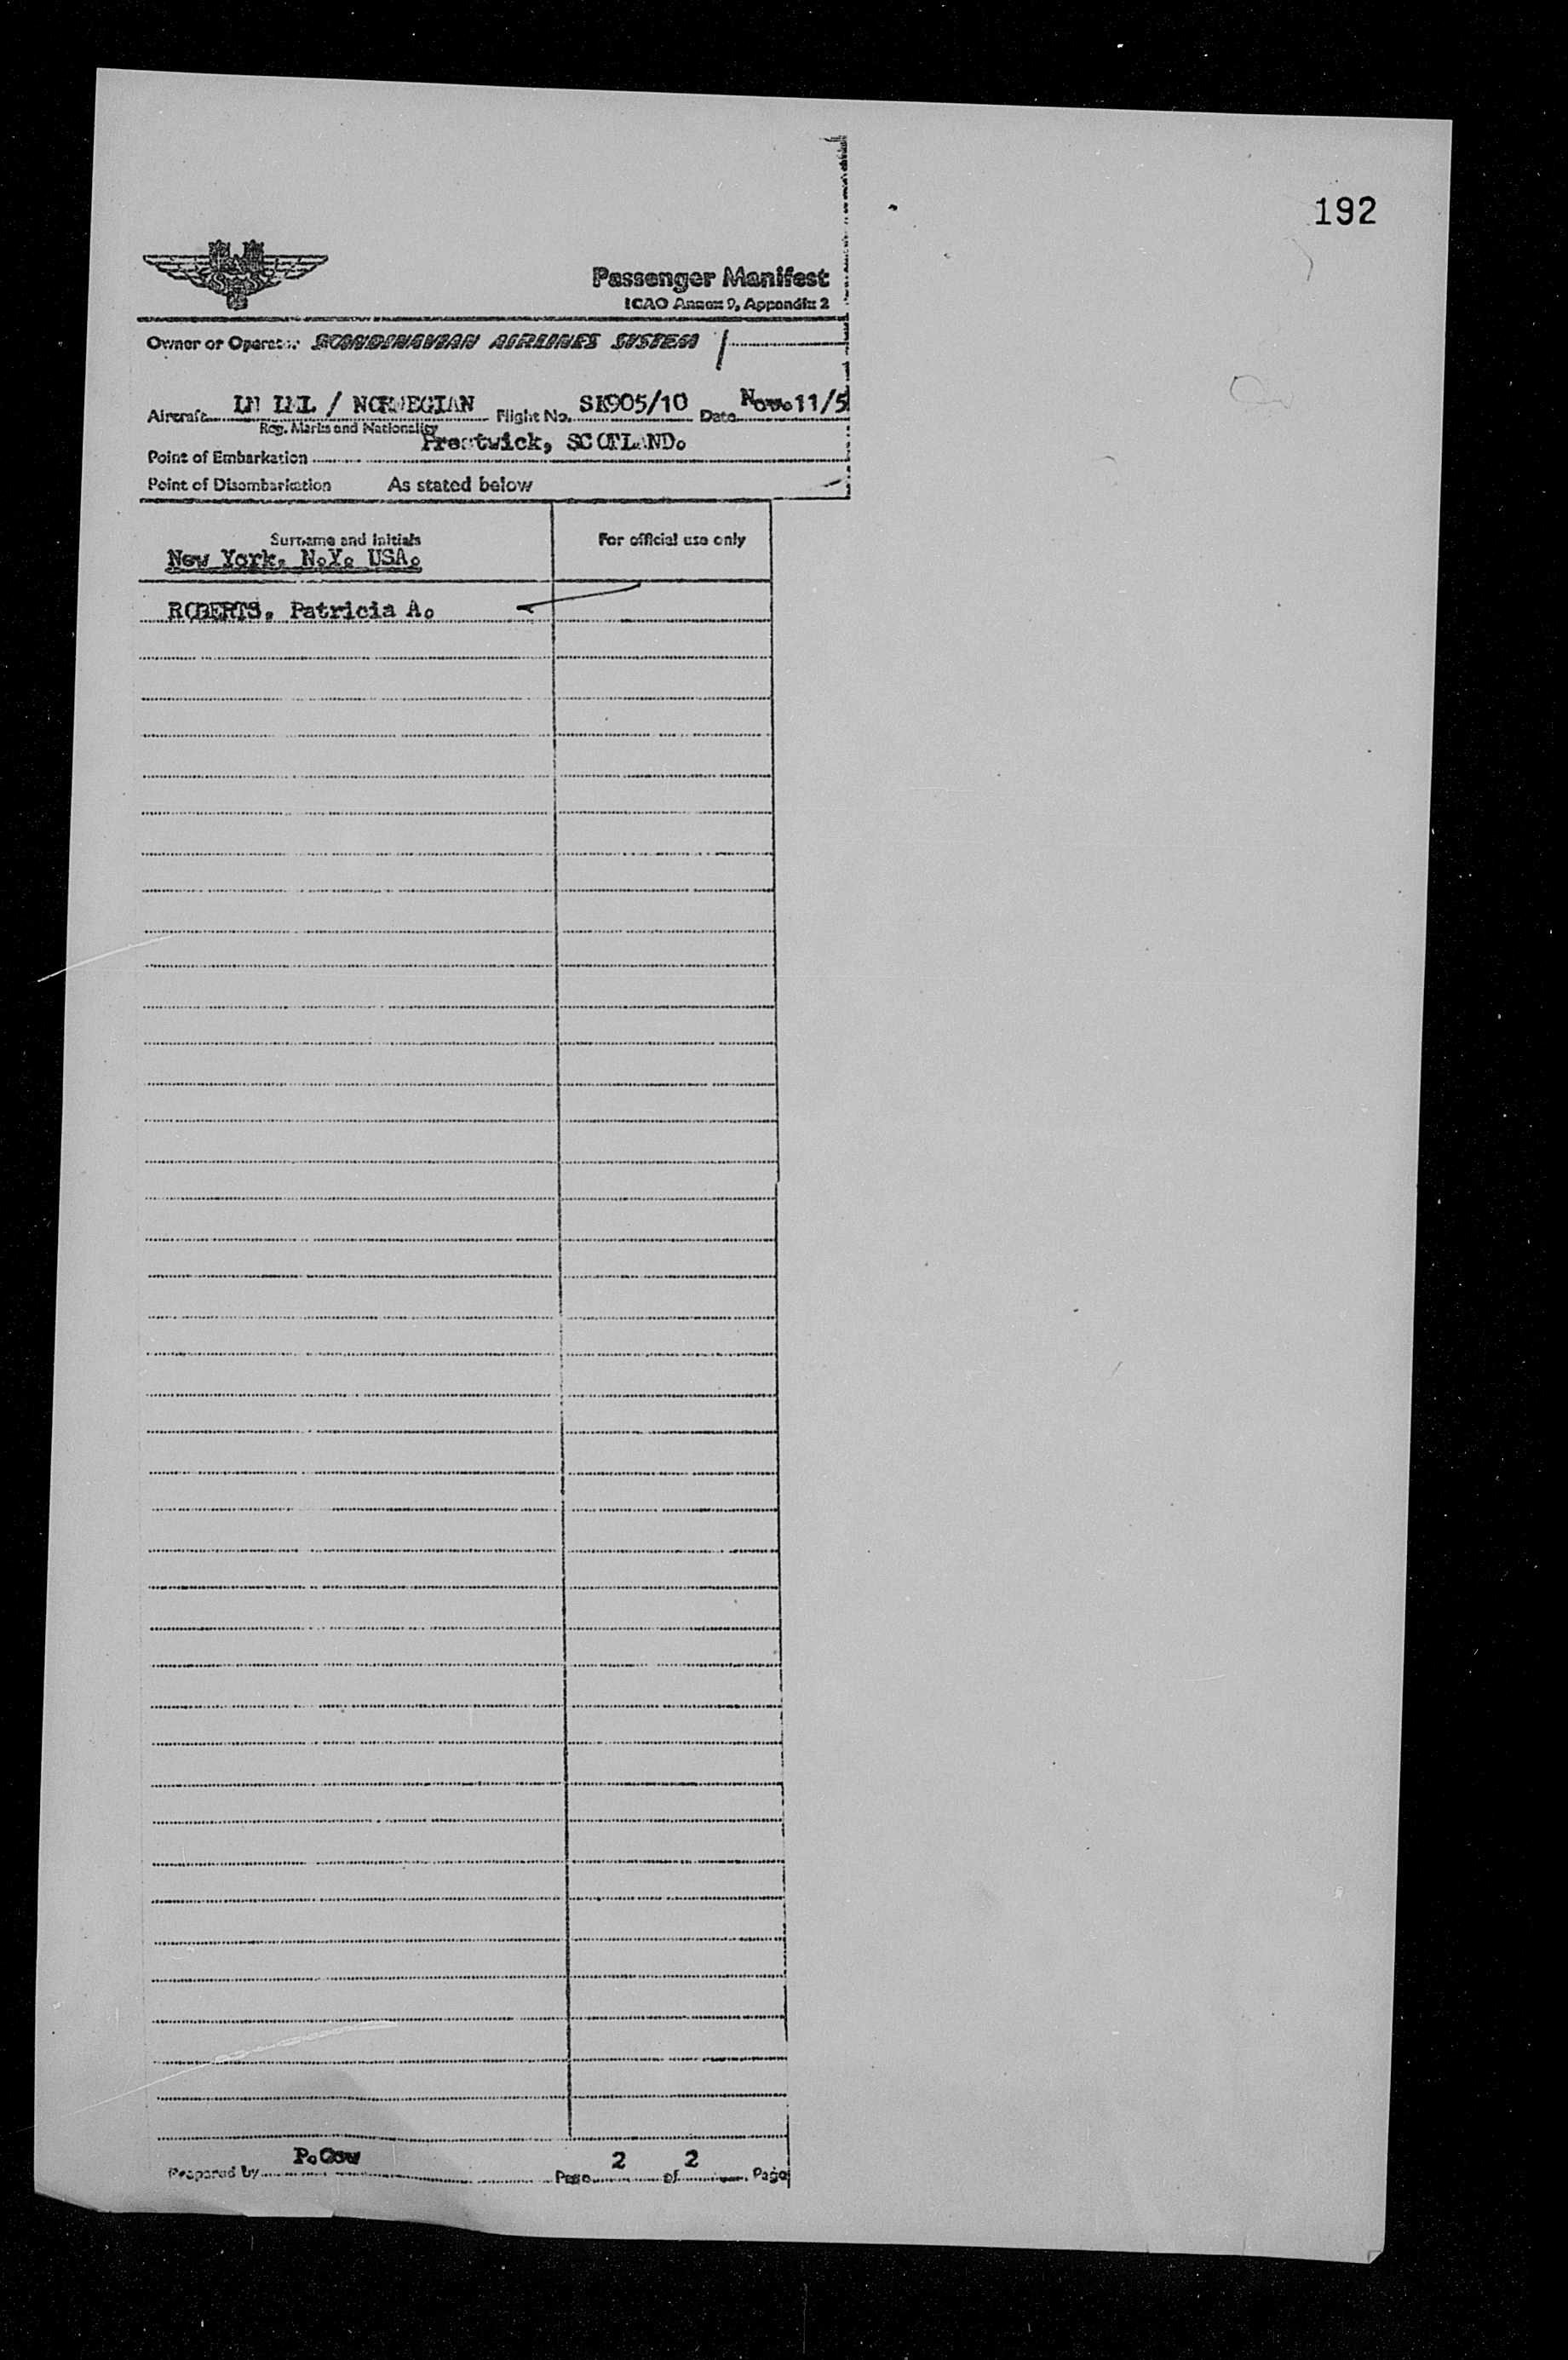 192
Passenger Manifest
ICAO Annex 9, Appendix 2
Owner or Operator SCANDINAVIAN AIRLINES SYSTEM
Aircraft / NORWEGIAN Flight No. SK905/10 Date Nov. 11/5
Reg. Marks and Nationality
Point of Embarkation Prestwick, SCOTLAND.
Point of Disembarkation As stated below
Surname and Initials For official use only
New York, N.Y. USA.
ROBERTS, Patricia A.
Prepared by P. Page 2 of 2 Page